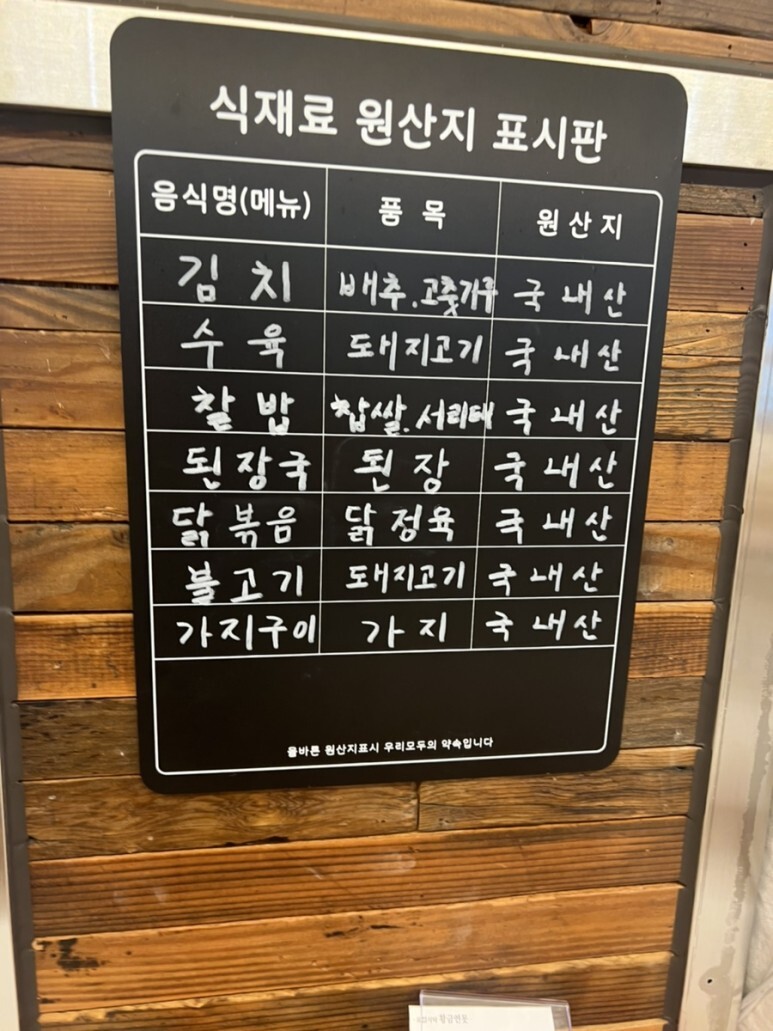 식재료 원산지 표시판
음식명(메뉴) 품 목 원 산 지
김 치 배추.고춧가루 국 내 산
수 육 돼지고기 국 내 산
찰 밥 찹쌀.서리태 국 내 산
된장국 된 장 국 내 산
닭볶음 닭정육 국 내 산
불고기 돼지고기 국 내 산
가지구이 가 지 국 내 산
올바른 원산지표시 우리모두의 약속입니다